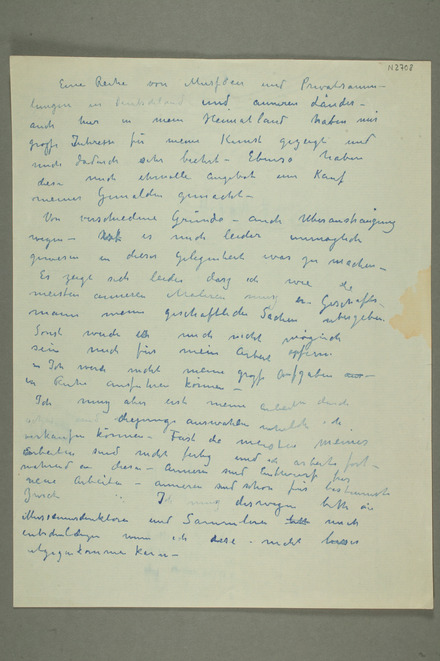 N2708
Eine Reihe von Museen und Privatsamm-
lungen in Deutschland und anderen Länder-
auch hier in mein Heimatland haben mir
gross Interesse für meine Kunst gezeigt und
mich dadurch sehr beehrt - Ebenso haben
diese mich ehrvolle angebote um Kauf
meines Gemälden gemacht -
Von verschiedene Gründe - auch Uberanstrengung
wegen - es mich leider unmöglich
gewesen in dieser Gelegenheit was zu machen -
Es zeigt sich leider dass ich wie die
meisten anderen Malern Geschäfts-
mann meine geschäftliche Sachen übergeben
Sonst werde ich mich nicht möglich
sein mich für meine Arbeit opfern
Ich werde nicht meine gross Aufgaben
in Ruhe ausführen können -
Ich muss aber erst meine arbeiten durch
auswahlen
verkaufen können - Fast die meisten meiner
Arbeiten sind nicht fertig und ich arbeite fort-
während an diesen - andere sind Entwürfe für
neue Arbeiten - anderen sind schon für bestimmte
Zweck Ich muss deswegen bitte die
Museumsdirektoren und Sammlern mich
entschuldigen wenn ich diese nicht besser
entgegenkommen kann -